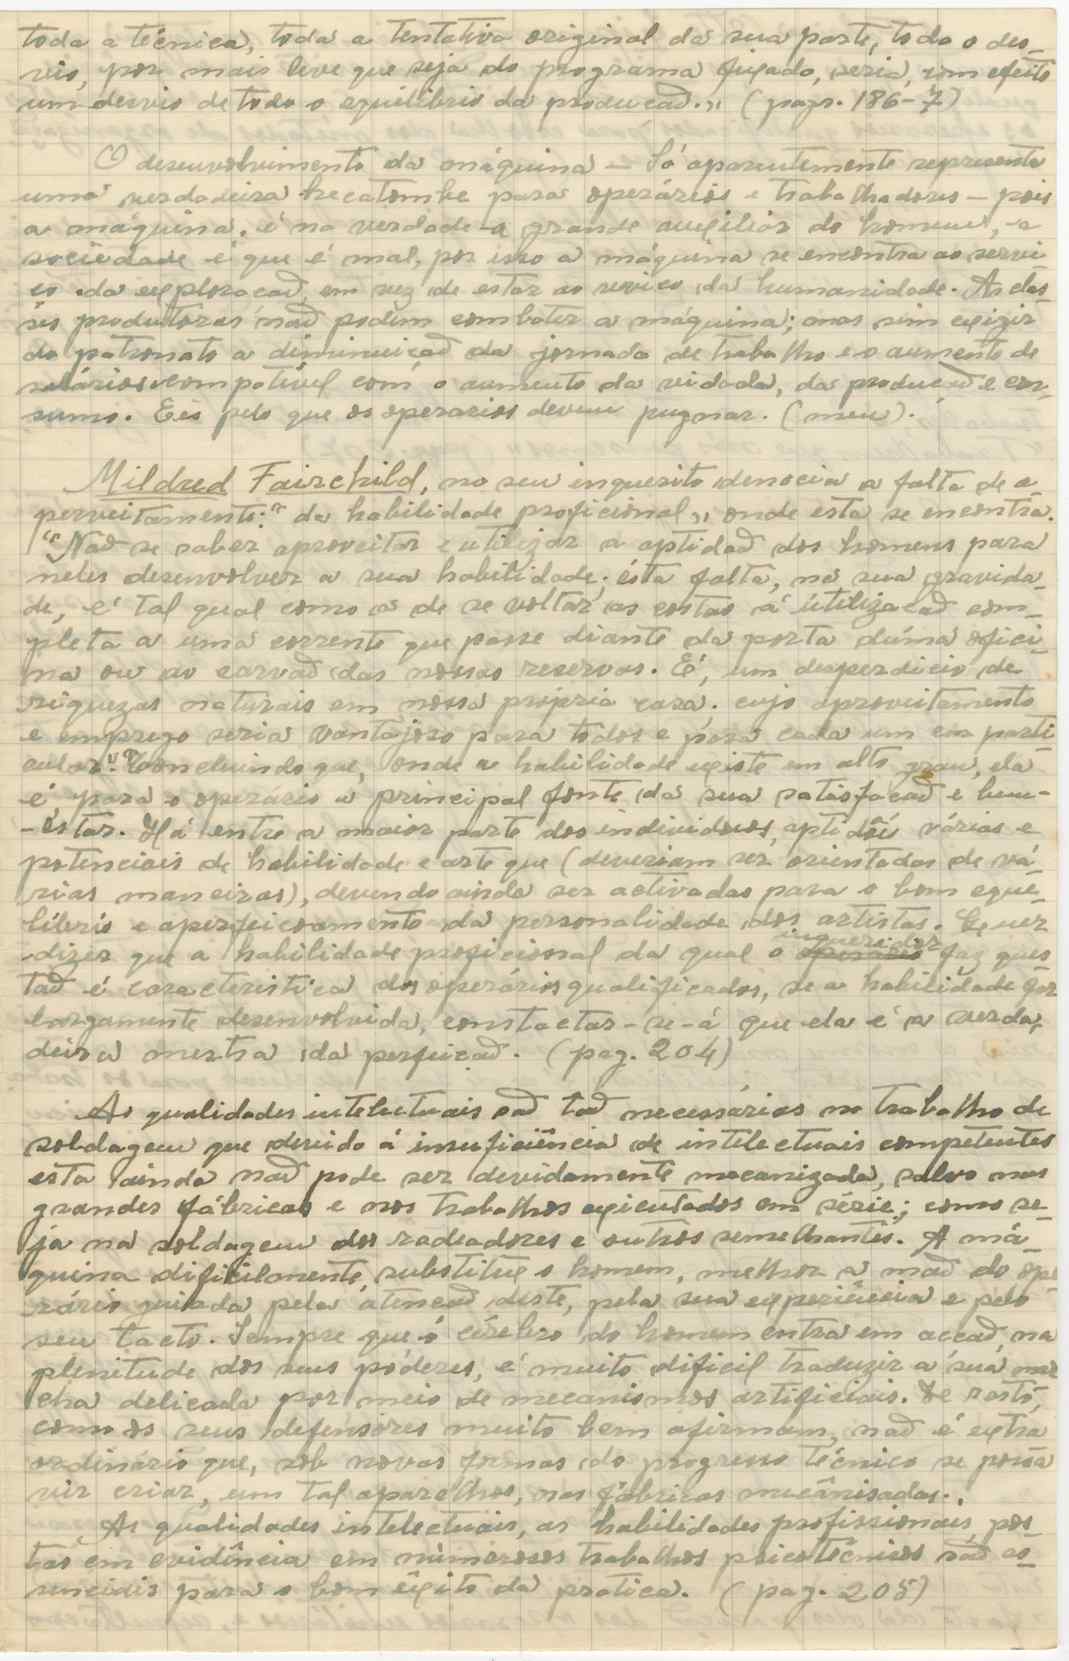 toda a técnica, toda a tentativa original da sua parte, todo o des-
vio, por mais leve que seja do programa fixado, seria, com efeito
um desvio de todo o equilibrio da produção.,, (pags. 186-7)
O desenvolvimento da máquina — Só aparentemente representa
uma verdadeira hecatombe para operários e trabalhadores — pois
a máquina, é na verdade a grande auxiliar do homem, a
sociedade é que é mal, por isso a máquina se encontra ao servi-
ço da exploração, em vez de estar ao serviço da humanidade. As clas-
ses produtoras não podem combater a máquina; mas sim exigir
do patronato a diminuição da jornada de trabalho e o aumento de
salários compativel com o aumento da vida, da produção e con-
sumo. Eis pelo que os operarios devem pugnar. (meu).
Mildred Fairchild, no seu inquerito denocia a falta de a-
perveitamento: "da habilidade proficional,, onde esta se encontra.
"Não se saber aproveitar e utilizar a aptidão dos homens para
neles desenvolver a sua habilidade; ésta falta, na sua gravida-
de, é tal qual como a de se voltar as costas á utilização com-
pleta a uma corrente que passe diante da porta dúma ofici-
na ou ao carvão das nossas reservas. É, um desperdicio de
riquezas naturais em nossa própria casa. cujo aproveitamento
e emprego seria vantajoso para todos e para cada um em parti
cular." Concluindo que, onde a habilidade existe em alto grau, ela
é, para o operário a principal fonte da sua satisfação e bem-
-éstar. Há entre a maior parte dos individuos, aptidõis várias e
potenciais de habilidade e arte que (deveriam ser orientadas de vá-
rias maneiras), devendo ainda ser activadas para o bom equi-
líbrio e aperfeiçoamento da personalidade dos artistas. Quer
dizer que a habilidade proficional da qual o inqueridor faz ques
tão é caracteristica dos operários qualificados, se a habilidade for
largamente desenvolvida, constactar-se-á que ela é a verda-
deira mestra da perfeição. (pag. 204)
As qualidades intelectuais são tão necessárias no trabalho de
soldagem que devido á insuficiência de intelectuais competentes
esta ainda não pode ser devidamente mecanizada, salvo nas
grandes fábricas e nos trabalhos exicutados em série; como se-
ja na soldagem dos radeadores e outros semelhantes. A má-
quina dificilmente, substitue o homem, melhor a mão do ope
rário guiada pela atenção deste, pela sua experiência e pelo
seu tacto. Sempre que o cérebro do homem entra em acção, na
plenitude dos seus póderes, é muito dificil traduzir a sua mar
cha delicada por meio de mecanismos artificiais. De rosto,
como os seus defensores muito bem afirmam, não é extra
ordinário que, sob novas formas do progresso técnico se possa
vir criar, um tal aparelhos, nas fábricas mecânisadas.,
As qualidades intelectuais, as habilidades profissionais, pos
tas em evidência em númerosos trabalhos psicotécnicos são es-
senciais para o bom êxito da pratica. (pag. 205)